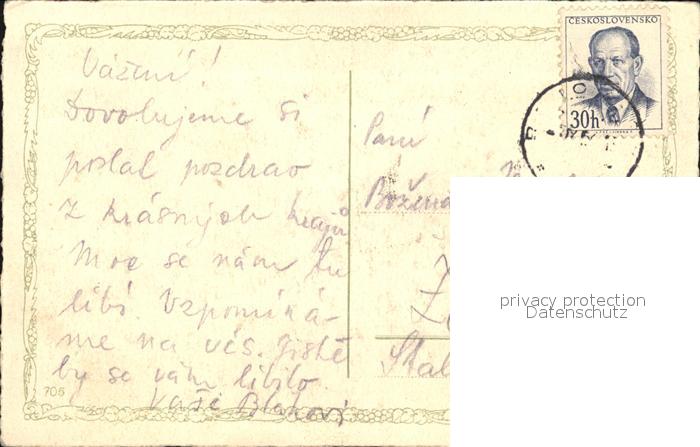 ČESKOSLOVENSKO
30h
Vážení!
Dovolujeme si
poslat pozdrav
z krásných krajů
Moc se nám tu
líbí. Vzpomíná-
me na vás. Jistě
by se vám líbilo.
Vaši Blahovi
Paní
Božena
Stal
705
privacy protection
Datenschutz